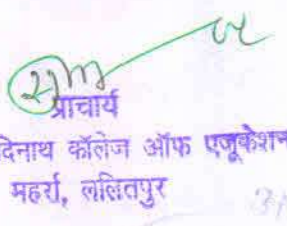 प्राचार्य
दिनाथ कॉलेज ऑफ एजूकेशन
महर्रा, ललितपुर